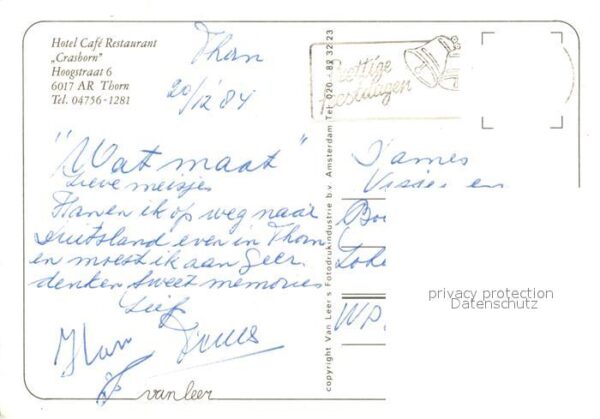 Hotel Café Restaurant
„Crasborn"
Hoogstraat 6
6017 AR Thorn
Tel. 04756-1281
Thorn
20/12 84
Prettige
Feestdagen
"Wat maat"
Lieve meisjes
Han en ik op weg naar
Duitsland even in Thorn
en moest ik aan Geer
denken sweet memories
Lief
Han
van leer
copyright Van Leer's Fotodrukindustrie b.v. Amsterdam Tel. 020 - 82 32 23
Dames
Visser en
Bo
Loke
WP.
privacy protection
Datenschutz